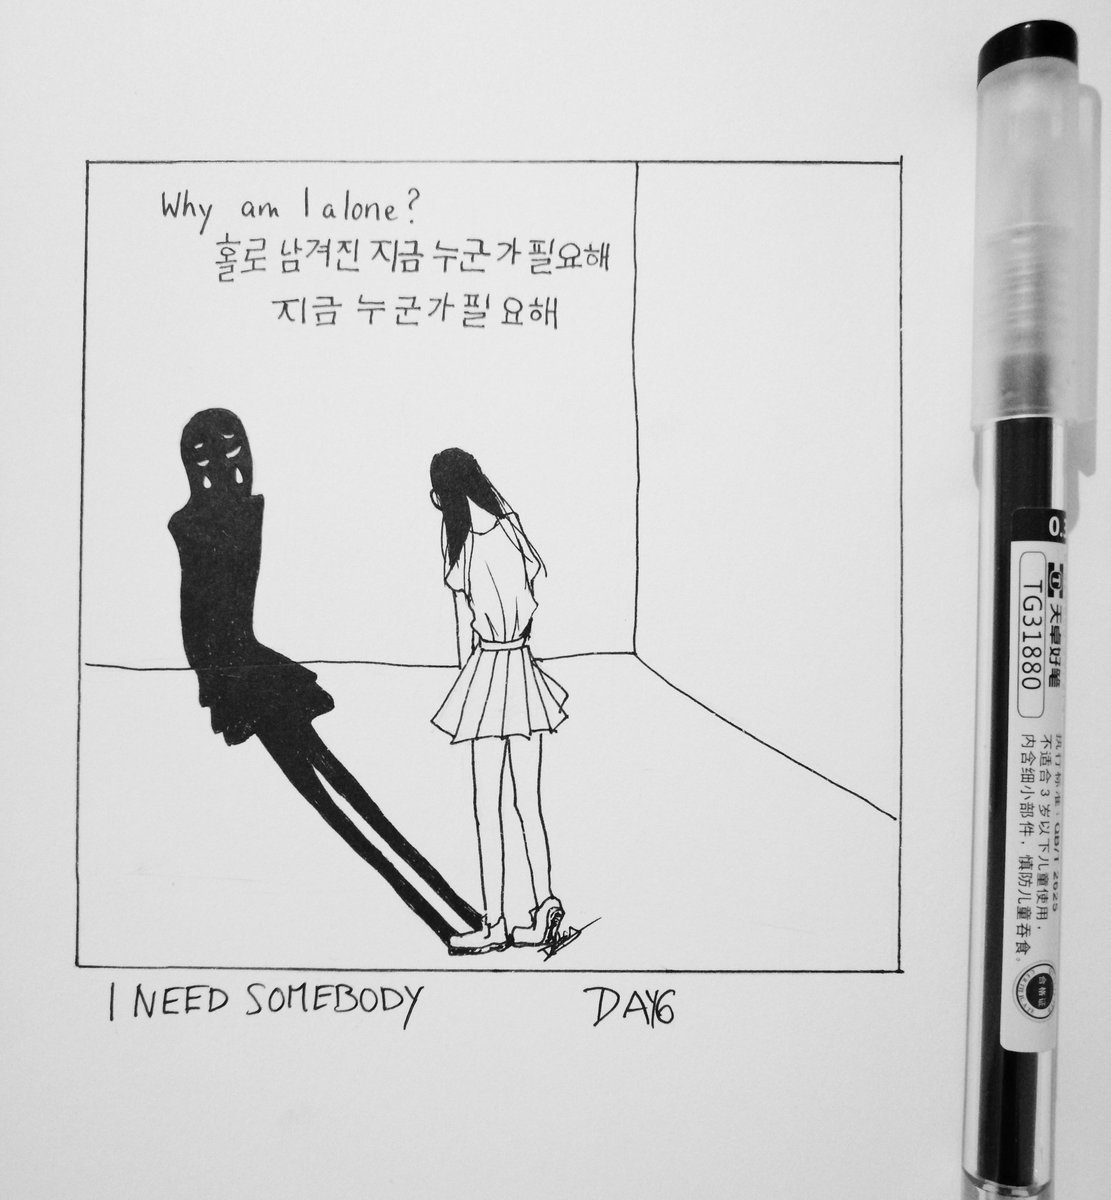 Why am I alone?
홀로 남겨진 지금 누군가 필요해
지금 누군가 필요해
I NEED SOMEBODY
DAY6
天卓好笔
TG31880
执行标准：GB/T 2625
不适合3岁以下儿童使用，
内含细小部件，慎防儿童吞食。
合格证